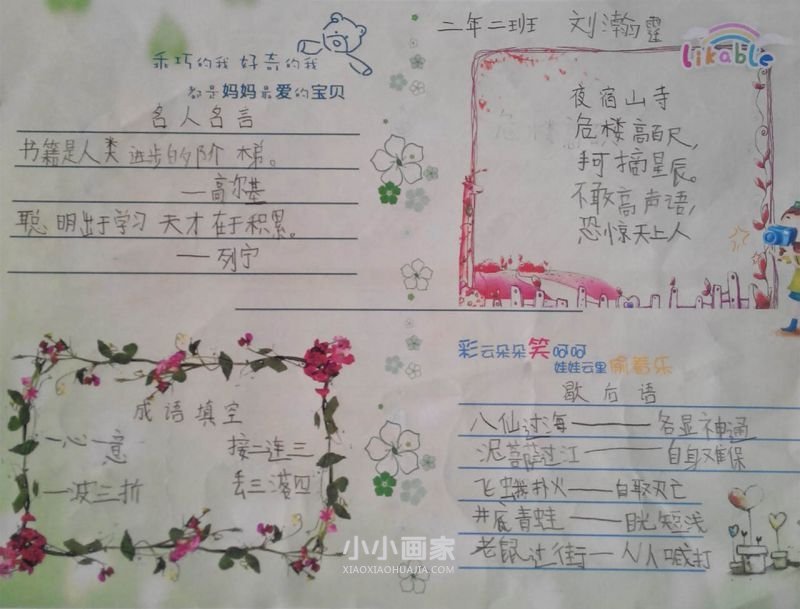 乖巧的我 好奇的我
都是妈妈最爱的宝贝
名人名言
书籍是人类进步的阶梯。
——高尔基
聪明出于学习 天才在于积累。
——列宁
二年二班 刘瀚霆
likable
夜宿山寺
危楼高百尺,
手可摘星辰。
不敢高声语,
恐惊天上人
成语填空
一心一意 接二连三
一波三折 丢三落四
彩云朵朵笑呵呵
娃娃云里偷着乐
歇后语
八仙过海——各显神通
泥菩萨过江——自身难保
飞蛾扑火——自取灭亡
井底青蛙——目光短浅
老鼠过街—人人喊打
小小画家
XIAOXIAOHUAJIA.COM